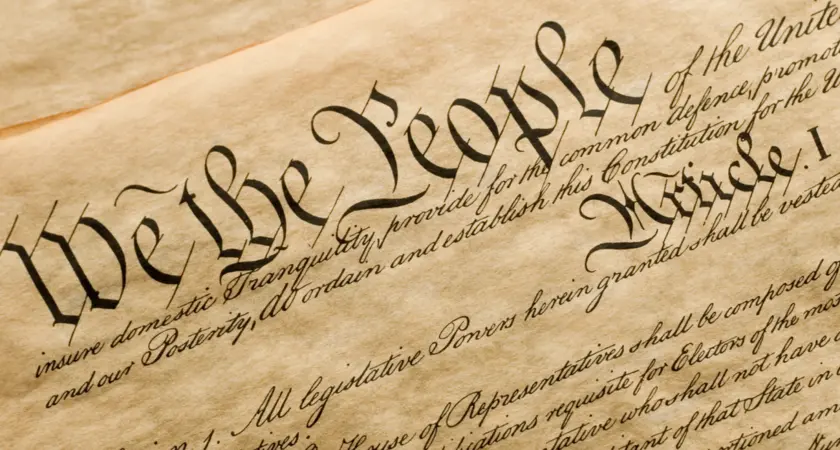 We the People of the Unite
insure domestic Tranquility, provide for the common defence, promot
and our Posterity, do ordain and establish this Constitution for the U
Article. I
1. All legislative Powers herein granted shall be vested
House of Representatives shall be composed of
requisite for Electors of the mos
who shall not have
of that State in